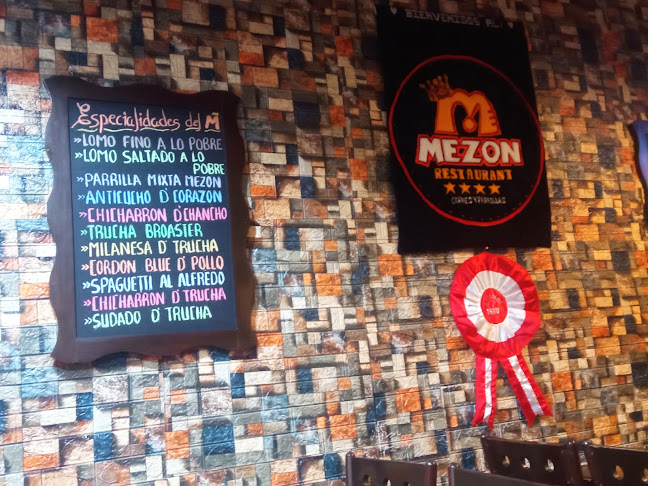 Especialidades del M
»LOMO FINO A LO POBRE
»LOMO SALTADO A LO
POBRE
»PARRILLA MIXTA MEZON
»ANTICUCHO D' CORAZON
»CHICHARRON D'CHANCHO
»TRUCHA BROASTER
»MILANESA D' TRUCHA
»CORDON BLUE D' POLLO
»SPAGUETTI AL ALFREDO
»CHICHARRON D' TRUCHA
»SUDADO D' TRUCHA
BIENVENIDOS AL
M
ME-ZON
RESTAURANT
CARNES Y PARRILLAS